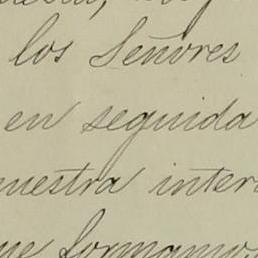 los Señores
en seguida
nuestra inter
que formamos